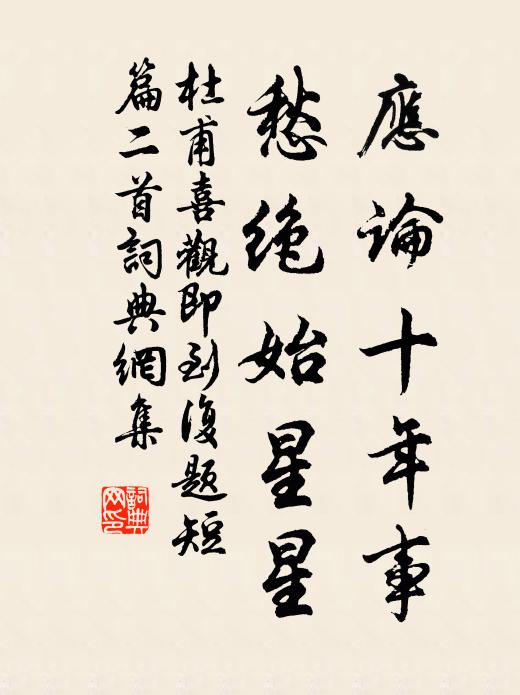 應論十年事
愁絕始星星
杜甫喜觀即到復題短
篇二首詞典網集
詞典
网印